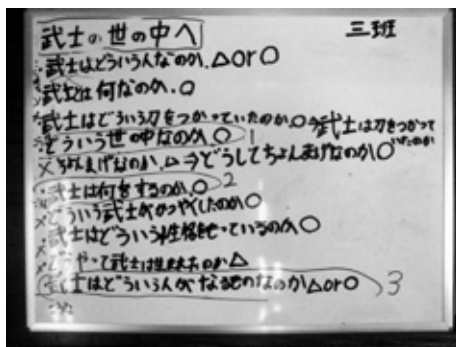 武士の世の中へ 三班
武士はどういう人なのか.△or○
武士とは何なのか.○
武士はどういう刀をつかっていたのか.○⇒武士は刀をつかって
いたのか
どういう世の中なのか○ 1
×ちょんまげなのか.△⇒どうしてちょんまげなのか○
武士は何をするのか.○ 2
×どういう武士がかつやくしたのか○
武士はどういう性格をもっているのか○
×どうやって武士は生まれたのか△
武士はどういう人がなるものなのか△or○ 3